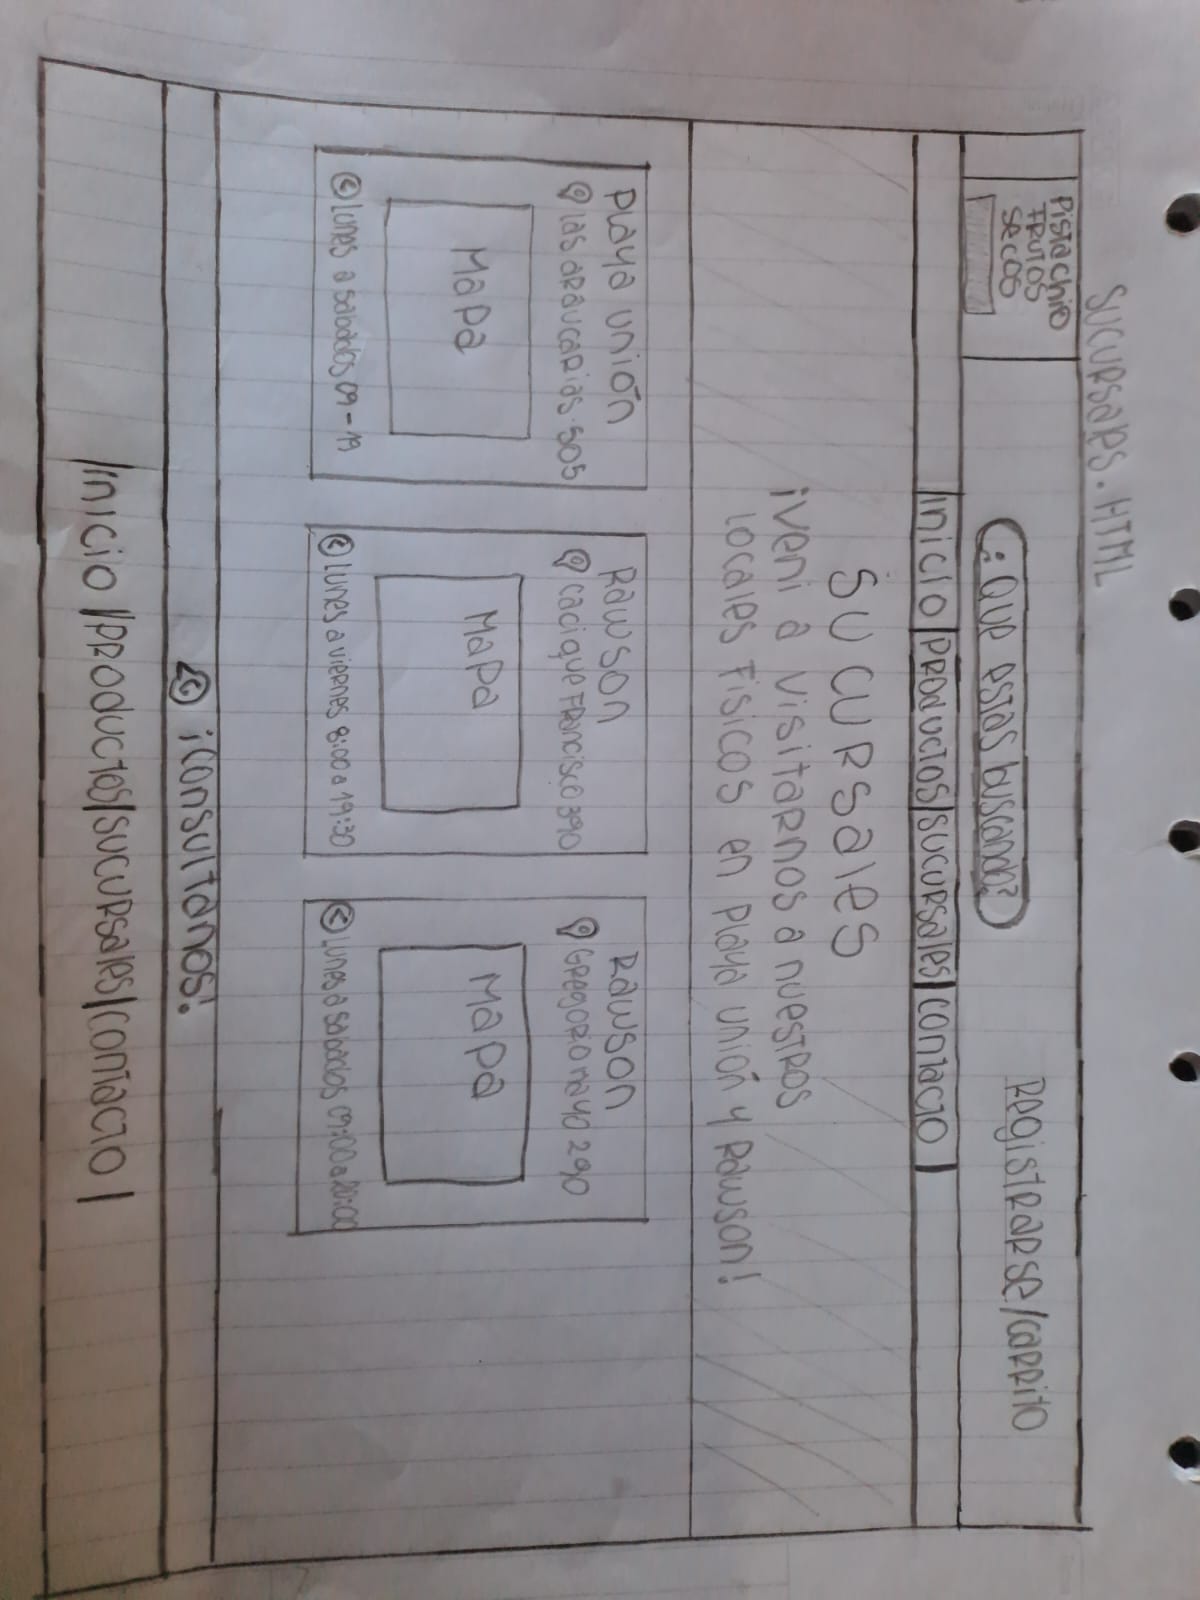 SUCURSales.HTML
Pistachio
FRUTOS
secos
¿Que estas buscando?
Registrarse/carrito
inicio|PRODUCTOS|SUCURSales|contacto|
SUCURSales
¡Veni a visitarnos a nuestros
Locales Fisicos en Playa Unión y Rawson!
Playa Unión
Las araucarias 505
Mapa
Lunes a sabados 09-19
Rawson
Cacique Francisco 390
Mapa
Lunes a viernes 8:00 a 19:30
Rawson
Gregorio mayo 290
Mapa
Lunes a sabados 09:00 a 20:00
¡Consultanos!
|inicio|PRODUCTOS|SUCURSales|contacto|